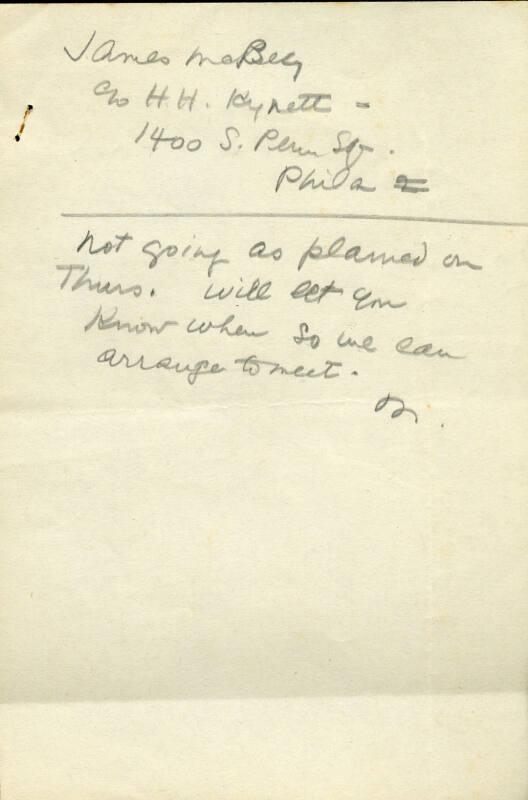 James McBey
c/o H.H. Kynett -
1400 S. Penn Sq.
Phila 2
not going as planned on
Thurs. will let you
know when so we can
arrange to meet.